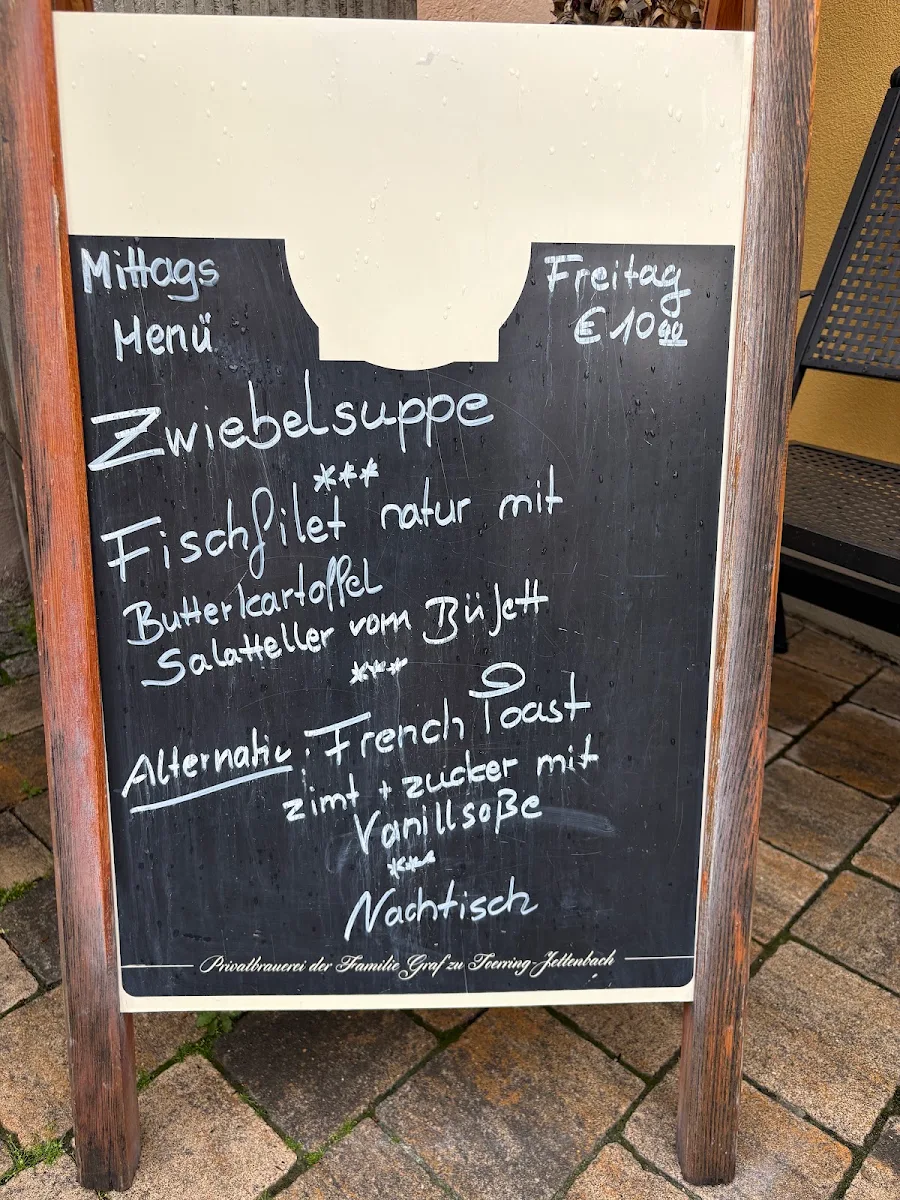 Mittags
Menü
Freitag
€ 10 40
Zwiebelsuppe
***
Fischfilet natur mit
Butterkartoffel
Salatteller vom Büfett
***
Alternativ: French Toast
zimt + zucker mit
Vanillsoße
***
Nachtisch
Privatbrauerei der Familie Graf zu Toerring-Jettenbach